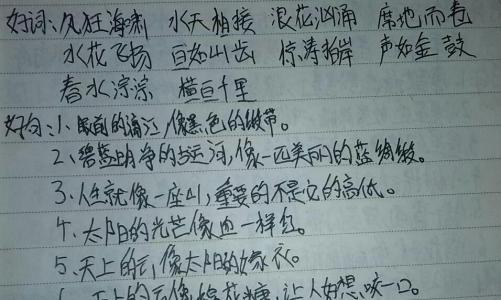 好词:风狂海啸 水天相接 浪花汹涌 席地而卷
水花飞扬 惊涛拍岸 声如金鼓
春水淙淙 横亘千里
好句:1、眼前的漓江,像黑色的缎带。
2、碧蓝明净的古运河,像一匹美丽的蓝绸缎。
3、人生就像一座山,重要的不是它的高低。
4、太阳的光芒像血一样红。
5、天上的云,像太阳的嫁衣。
6、天上的云像棉花糖,让人好想咬一口。